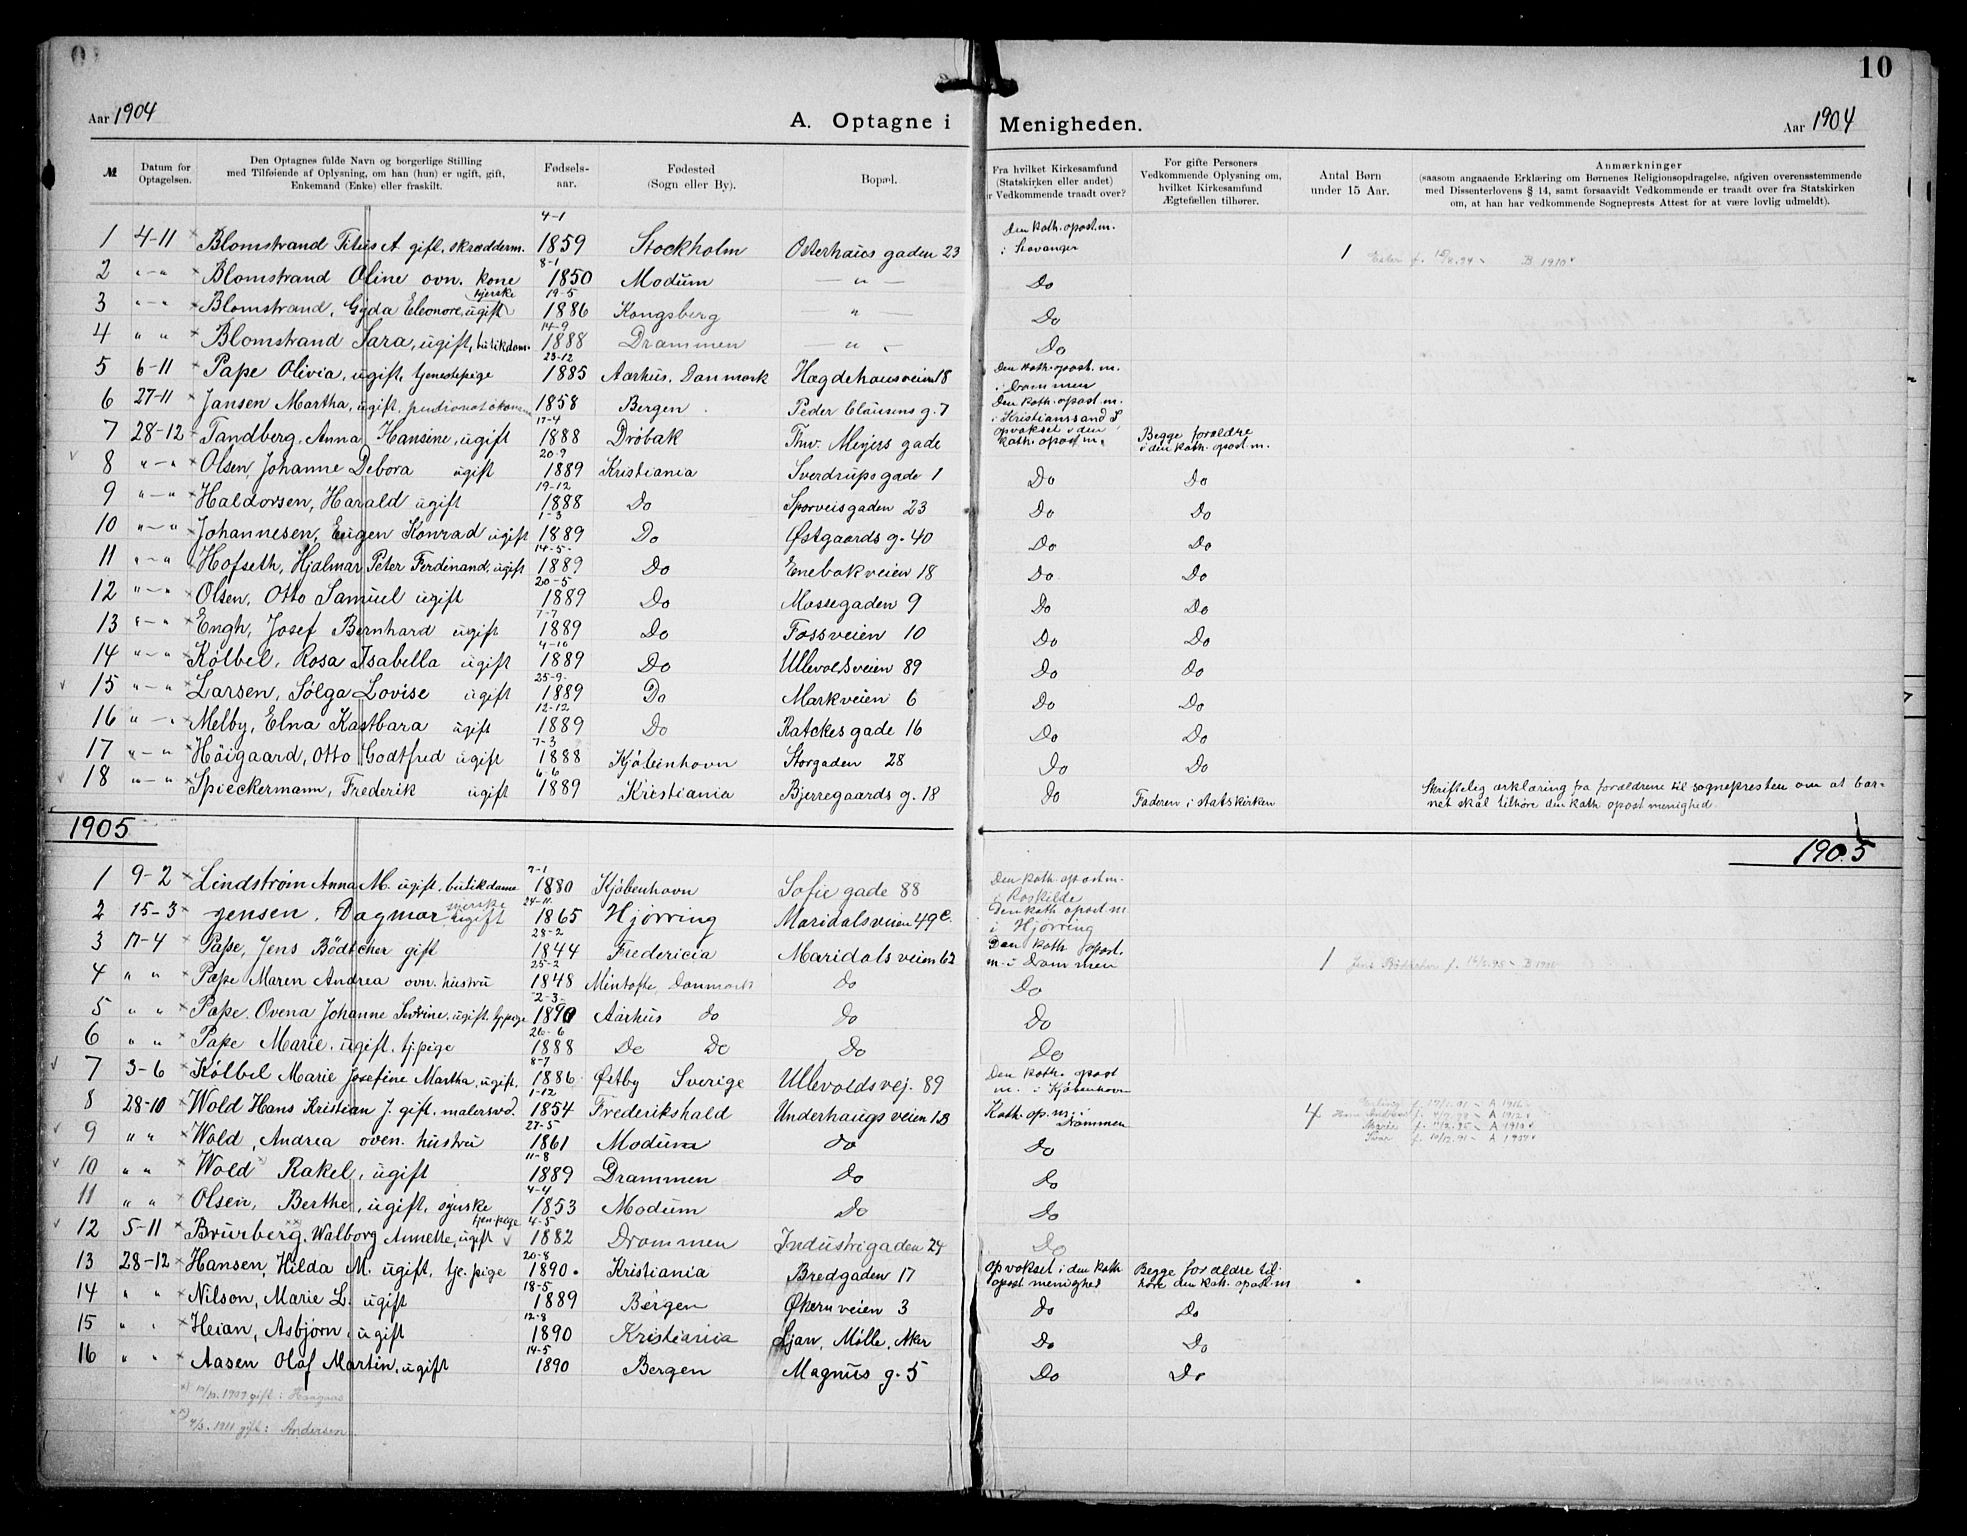 10
Aar 1904 A. Optagne i Menigheden. Aar 1904
№ Datum for Optagelsen. Den Optagnes fulde Navn og borgerlige Stilling med Tilføiende af Oplysning, om han (hun) er ugift, gift, Enkemand (Enke) eller fraskilt. Fødsels-aar. Fødested (Sogn eller By). Bopæl. Fra hvilket Kirkesamfund (Statskirken eller andet) er Vedkommende traadt over? For gifte Personers Vedkommende Oplysning om, hvilket Kirkesamfund Ægtefællen tilhører. Antal Børn under 15 Aar. Anmærkninger (saasom angaaende Erklæring om Børnenes Religionsopdragelse, afgiven overensstemmende med Dissenterlovens § 14, samt forsaavidt Vedkommende er traadt over fra Statskirken om, at han har vedkommende Sogneprests Attest for at være lovlig udmeldt).
1 4-11 × Blomstrand Titus A gift, skrædderm. 4-1 1859 Stockholm Osterhaus gaden 23 Den kath. apost. m. i Stavanger 1 Ester f. B 1910
2 "-" × Blomstrand Oline ovn. kone 8-1 1850 Modum — " — Do
3 "-" × Blomstrand, Gyda Eleonore, ugift syerske 19-5 1886 Kongsberg " — Do
4 " " × Blomstrand Sara, ugift, butikdam. 14-9 1888 Drammen — " — Do
5 6-11 × Pape Olivia, ugift, tjenestepige 23-12 1885 Aarhus, Danmark Hægdehausveien 18 Den kath. apost. m. i Drammen
6 27-11 × Jansen Martha, ugift, 1858 Bergen Peder Claúsens g. 7 Den kath. apost. m. i Kristianssand S
7 28-12 × Tandberg, Anna Hansine, ugift 17-4 1888 Dröbak Thv. Meyers gade opvokset i den kath. apost m. Begge forældre i den kath. apost m.
8 "-" × Olsen, Johanne Debora ugift 20-9 1889 Kristiania Sverdrups gade 1 Do Do
9 "-" × Haldorsen, Harald ugift 19-12 1888 Do Sporveisgaden 23 Do Do
10 "-" × Johannesen, Eugen Konrad ugift 1-3 1889 Do Østgaards g. 40 Do Do
11 "-" × Hofseth, Hjalmar Peter Ferdinand, ugift 14-5 1889 Do Enebakveien 18 Do Do
12 "-" × Olsen, Otto Samuel ugift 20-5 1889 Do Mossegaden 9 Do Do
13 "-" × Engh, Josef Bernhard ugift 7-7 1889 Do Fossveien 10 Do Do
14 "-" × Kölbel, Rosa Isabella ugift 4-10 1889 Do Ullevoldsveien 89 Do Do
15 "-" × Larsen, Sölga Lovise ugift 25-9 1889 Do Markveien 6 Do Do
16 "-" × Melby, Elna Kastbara ugift 12-12 1889 Do Ratckes gade 16 Do Do
17 "-" × Höigaard, Otto Godtfred ugift 7-3 1888 Kjöbenhavn Storgaden 28 Do Do
18 "-" × Spieckermann, Frederik ugift 6-6 1889 Kristiania Bjerregaards g. 18 Do Faderen i statskirken Skriftelig erklæring fra forældrene til sognepresten om at bar-
net skal tilhöre den kath apost menighed.
1905 1905
1 9-2 × Lindström Anna M. ugift, butikdame 7-1 1880 Kjöbenhavn Sofie gade 88 Den kath. apost m. i Roskilde
2 15-3 × Jensen, Dagmar syerske ugift 24-11 1865 Hjörring Maridalsveien 49 c. Den kath apost m i Hjörring
3 17-4 × Pape, Jens Bödtcher gift 28-2 1844 Fredericia Maridalsveien 62 Den kath apost. m. i Drammen 1 Jens Bödtcher f.
4 " " × Pape Maren Andrea ovn. hustru 25-2 1848 Mintofte, Danmark do Do
5 " " × Pape, Ovena Johanne Sevrine, ugift, tj.pige 2-3 1890 Aarhus do do Do
6 " " × Pape Marie, ugift, tj.pige 26-6 1888 Do Do Do Do
7 3-6 × Kölbel Marie Josefine Martha, ugift, 8-7 1886 Østby Sverige Ullevoldsvej. 89 Den kath. apost m. i Kjöbenhavn
8 28-10 × Wold Hans Kristian J. gift, malersvd. 1-12 1854 Frederikshald Underhaugs veien 1B Kath. ap. m. i Drammen 4
9 " " × Wold, Andrea oven. hustru 27-5 1861 Modum do Do
10 " " × Wold Rakel, ugift 11-8 1889 Drammen Do Do
11 " " × Olsen, Berthe, ugift, syerske 4-4 1853 Modum Do Do
12 5-11 × Brurberg, Walborg Annette, ugift tjen.pige 4-5 1882 Drammen Industrigaden 24 Do
13 28-12 × Hansen, Hilda M. ugift, tje. pige 20-8 1890 Kristiania Bredgaden 17 opvokset i den kath apost menighed Begge forældre til-höre den kath. apost. m
14 " " × Nilson, Marie L. ugift 18-5 1889 Bergen Økern veien 3 do Do
15 " " × Heian, Asbjörn, ugift 12-8 1890 Kristiania Ljan, Mölle, Aker Do Do
16 " " × Aasen Olaf Martin, ugift 14-5 1890 Bergen Magnus g. 5 Do Do
×) 1907 gift: Haagaas
××) 4/3. 1911 gift: Andersen